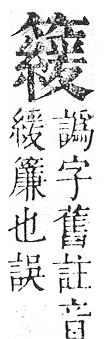 譌字舊註音
緩簾也誤